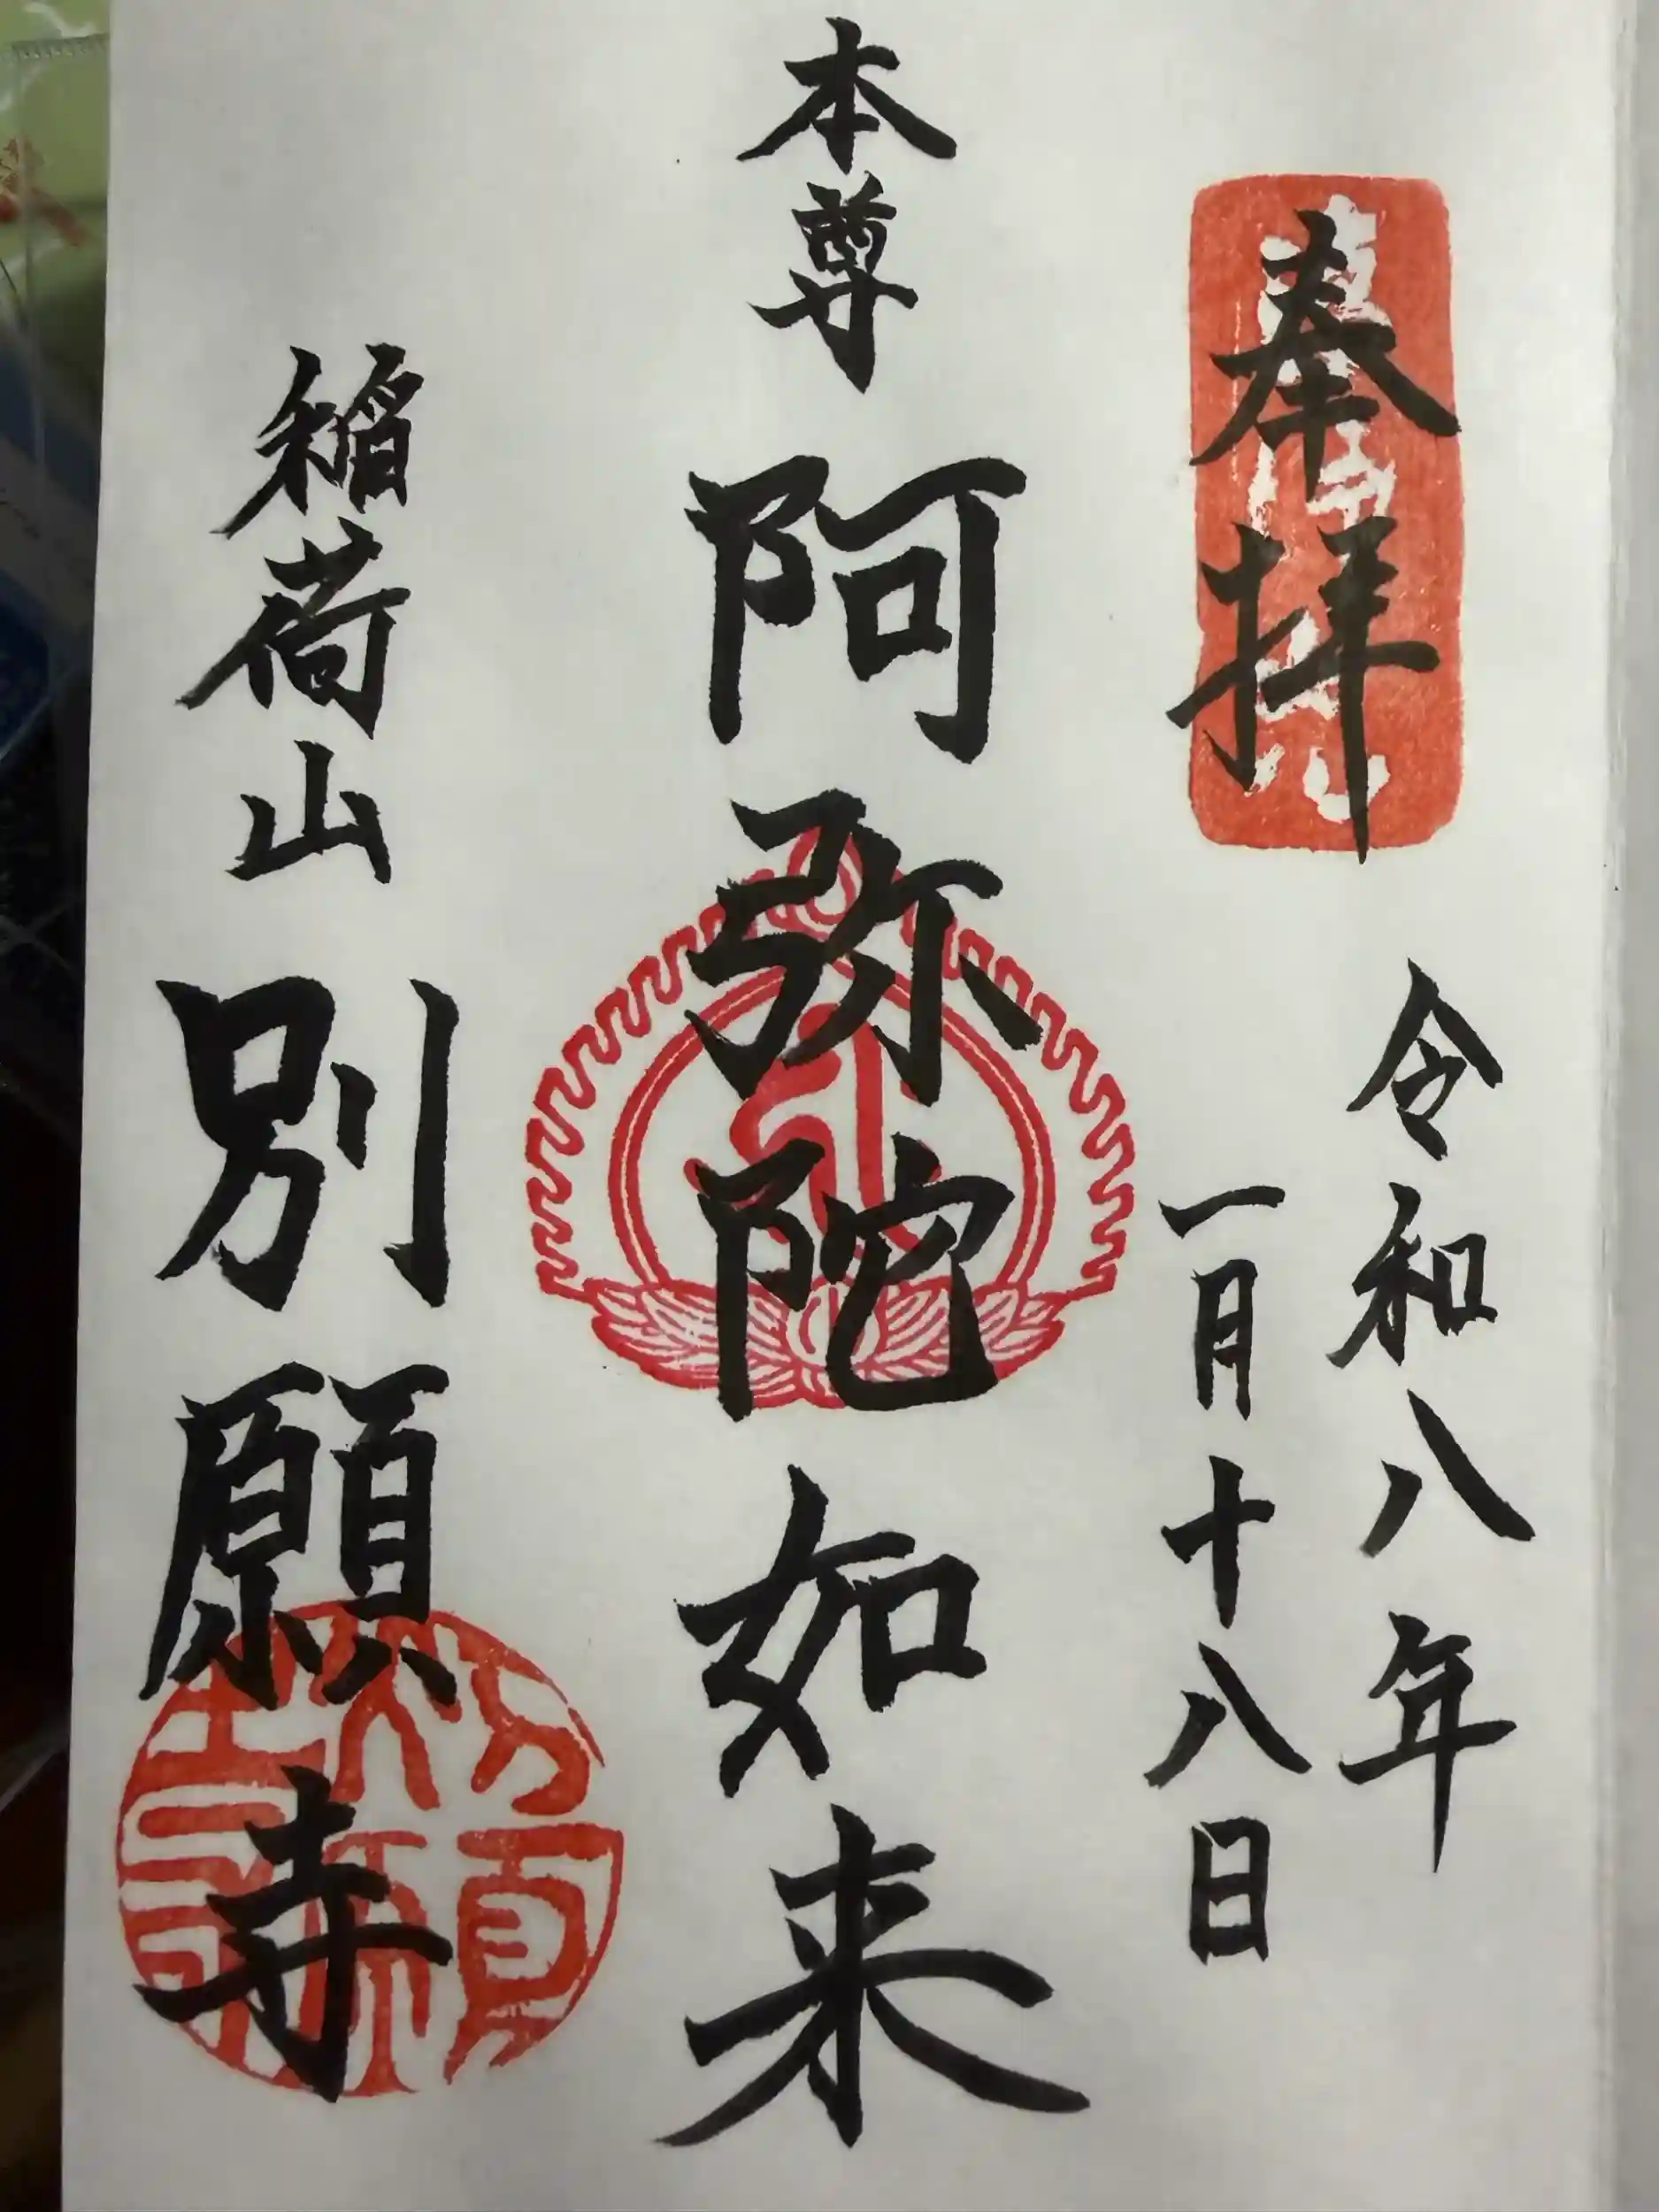 奉拝
令和八年
一月十八日
本尊 阿弥陀如来
稲荷山 別願寺